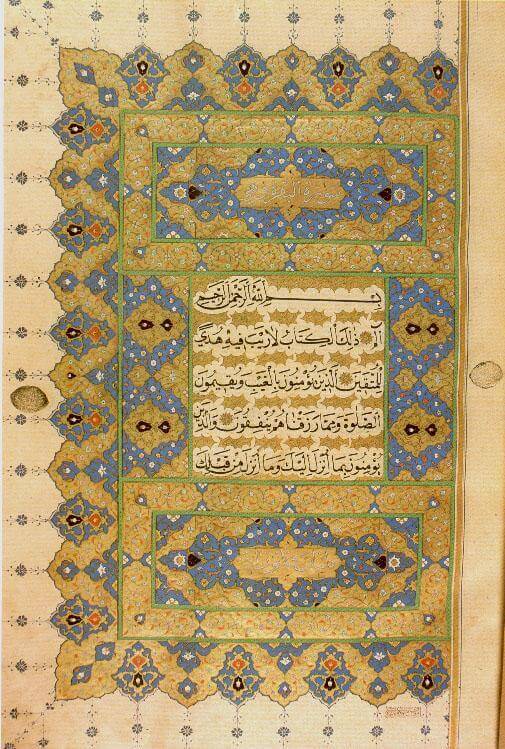 بِسْمِ اللهِ الرَّحْمٰنِ الرَّحِيمِ
الٓمٓ ذٰلِكَ الْكِتَابُ لَا رَيْبَ فِيهِ هُدًى
لِلْمُتَّقِينَ الَّذِينَ يُؤْمِنُونَ بِالْغَيْبِ وَيُقِيمُونَ
الصَّلٰوةَ وَمِمَّا رَزَقْنَاهُمْ يُنْفِقُونَ وَالَّذِينَ
يُؤْمِنُونَ بِمَا أُنْزِلَ إِلَيْكَ وَمَا أُنْزِلَ مِنْ قَبْلِكَ